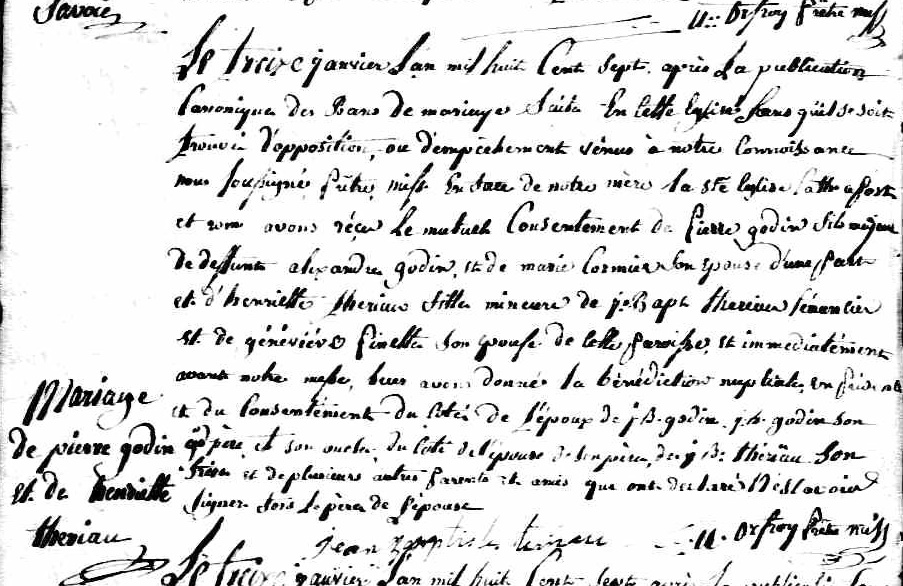 Savoie
U: Orfroy prêtre miss
Le treize janvier L'an mil huit Cent Sept. après La publication
Canoniques des Bans de mariage faite En Cette Eglise Sans qu'il Se Soit
trouvée d'opposition, ou d'empechement vénus à notre Connoissance
nous Soussigné prêtre, miss. En face de notre mère la Ste Eglise Cath apost
et rom avons réçu Le mutuel Consentement de pierre godin fils majeur
de deffunt alexandre godin, et de marie Cormier Son epouse d'une part
et d'henriette theriau fille mineure de j. Bapt theriau
et de géneviéve pinette Son epouse de Cette paroisse, et immediatément
avant notre messe, Leur avons donné la bénédiction nuptiale, en présence
et du Consentément du Coté de L'époux de j B. godin, j. b. godin Son
père, et son oncle, du Côté de L'épouse de Son père, de j B. thériau Son
frère et de plusieurs autres parents et amis qui ont déclaré Ne Scavoir
Signer fors Le père de L'épouse
Mariage
de pierre godin
et de henriette
theriau
jean baptiste teriau U. Orfroy prêtre miss
Le treize janvier L'an mil huit Cent Sept après La